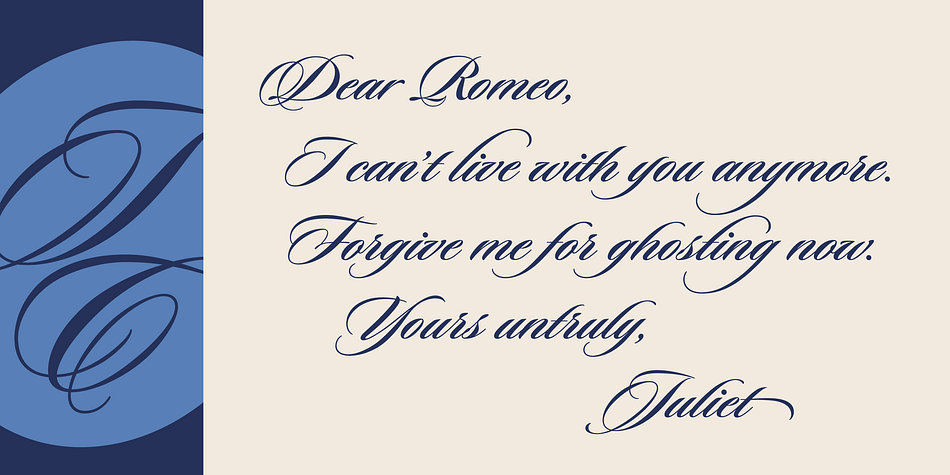 Dear Romeo,
I can't live with you anymore.
Forgive me for ghosting now.
Yours untruly,
Juliet